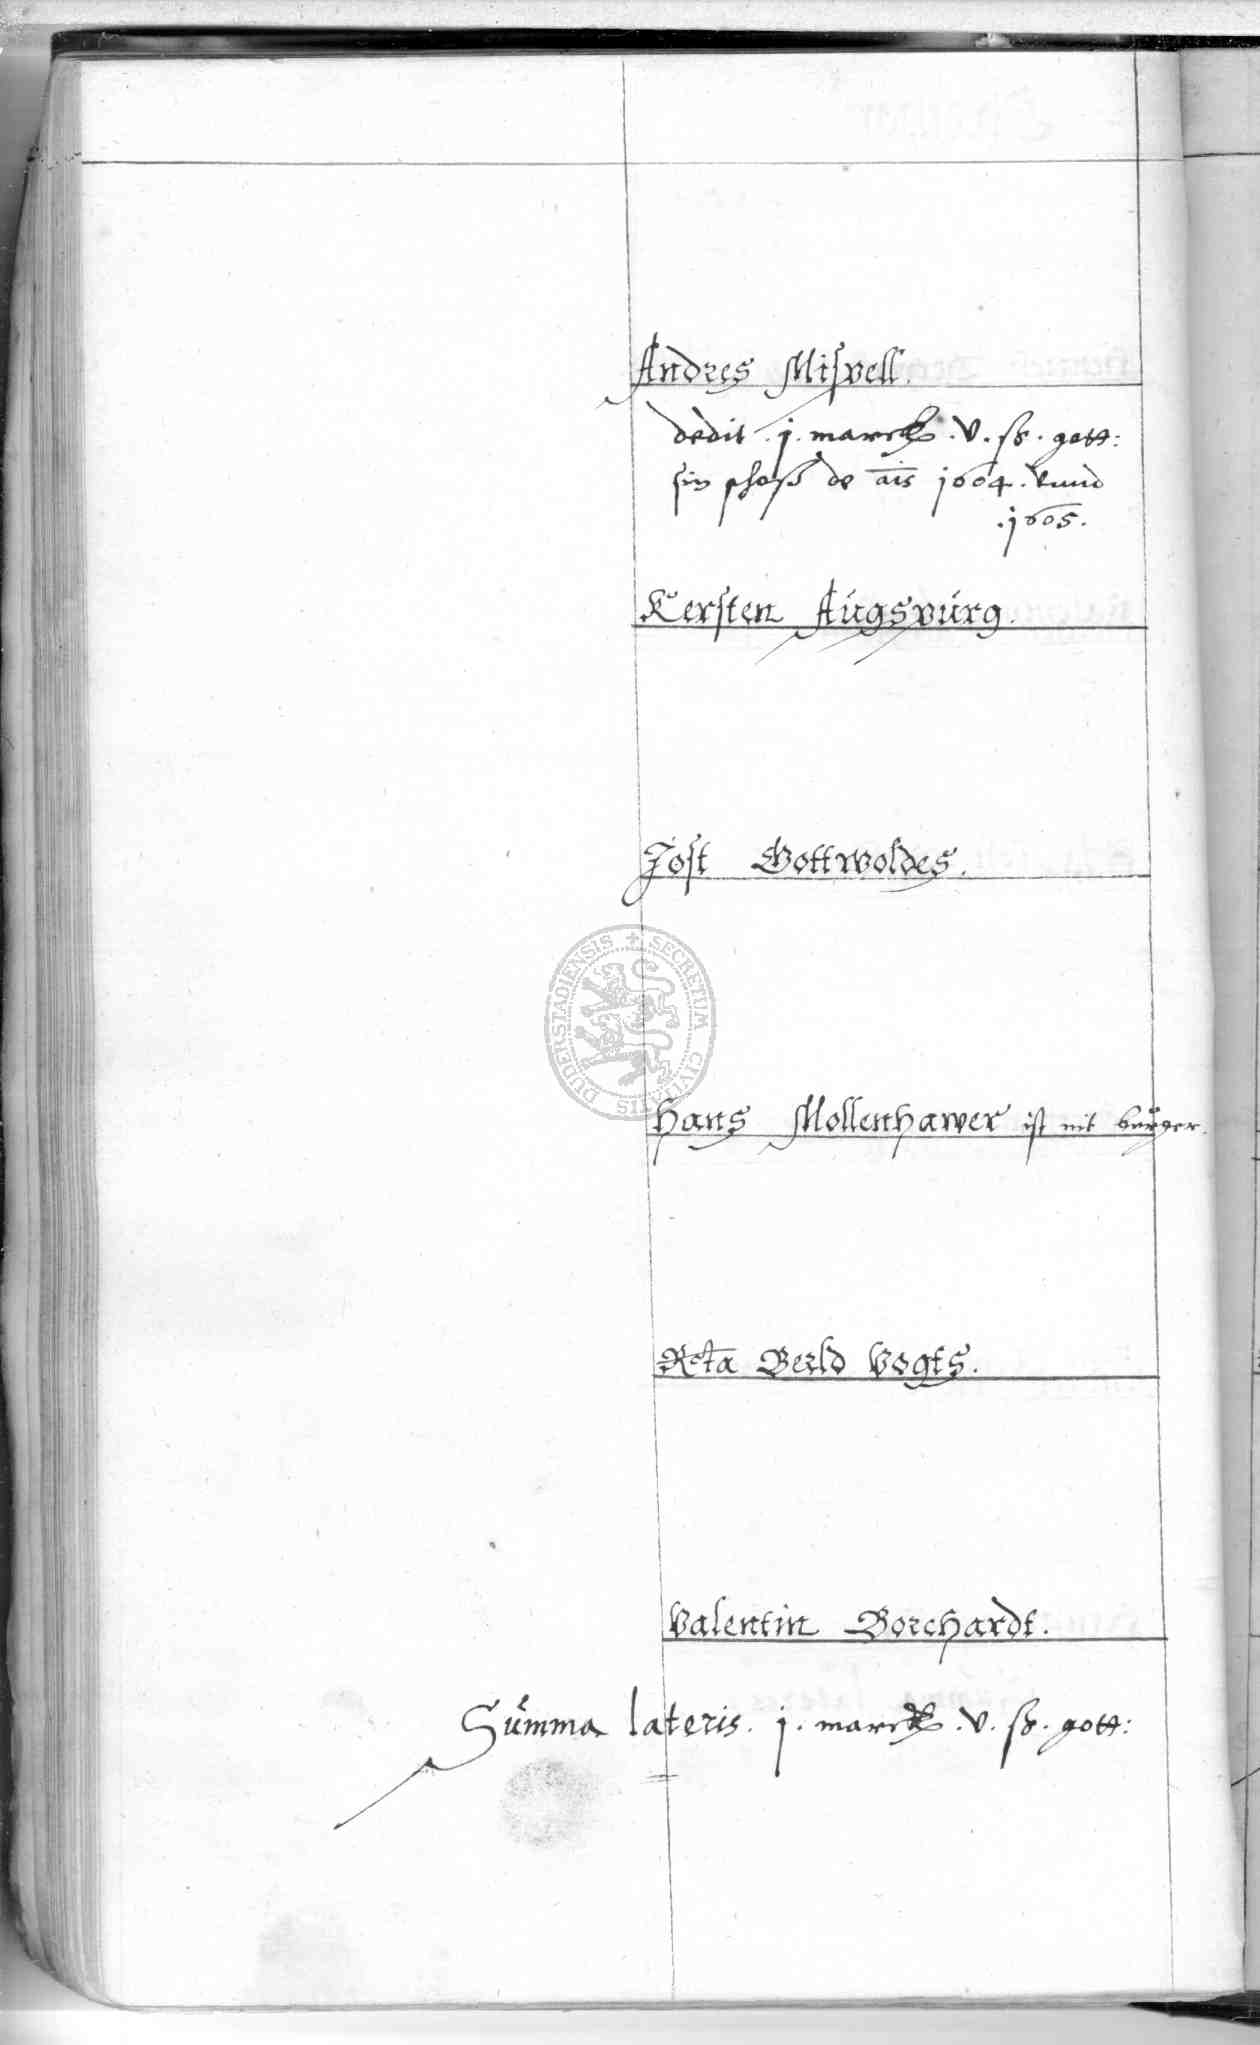 Andres Misvell.
dedit .j. marck .v. ß. gott:
sin schoß de ais 1604. vnnd
.1605.
Kersten Augsburg.
Jost Gottwoldes.
DUDERSTADIENSIS + SECRETUM CIVITATIS
Hans Mollenhawer ist nit burger.
Rcta Berld Vogts.
Valentin Borchardt.
Summa lateris. j. marck .v. ß. gott: